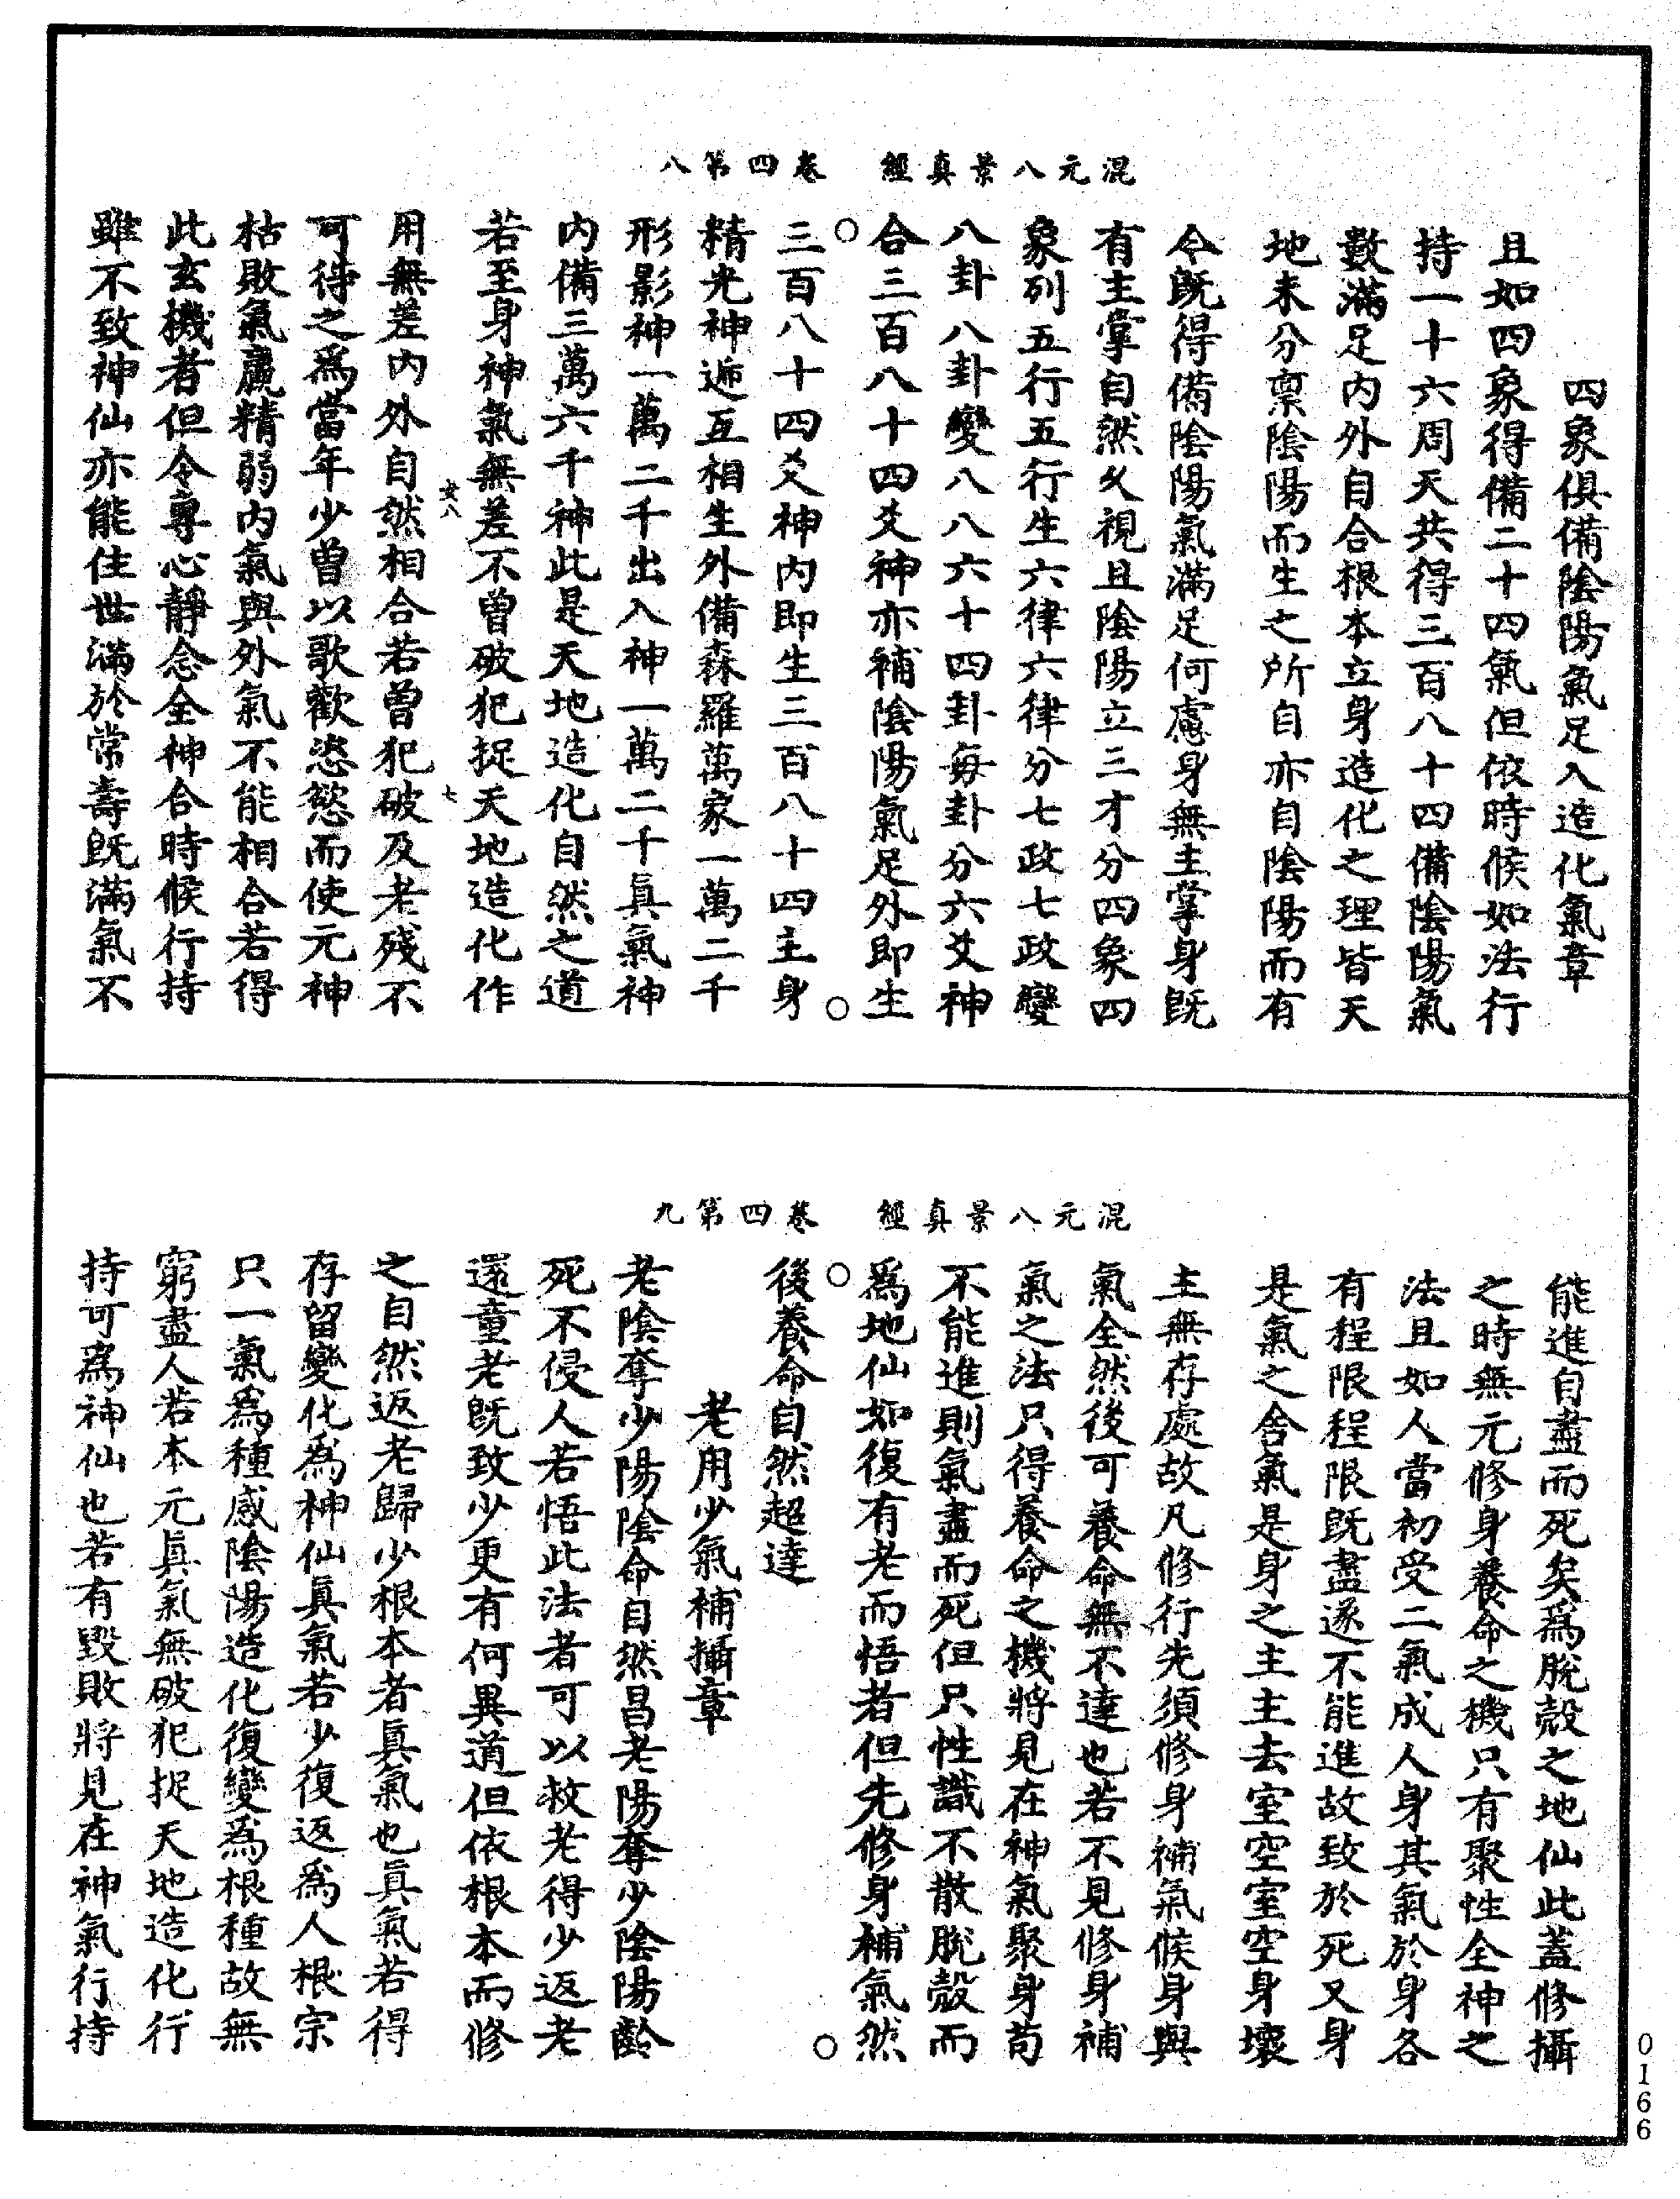 混元八景真經　卷四第八
四象俱備陰陽氣足入造化氣章
且如四象得備二十四氣但依時候如法行
持一十六周天共得三百八十四備陰陽氣
數滿足内外自合根本立身造化之理皆天
地未分禀陰陽而生之所自亦自陰陽而有
令既得備陰陽氣滿足何慮身無主掌身既
有主掌自然久視且陰陽立三才分四象四
象列五行五行生六律六律分七政七政變
八卦八卦變八八六十四卦每卦分六爻神
合三百八十四爻神亦補陰陽氣足外即生
三百八十四爻神内即生三百八十四主身
精光神遞互相生外備森羅萬象一萬二千
形影神一萬二千出入神一萬二千眞氣神
内備三萬六千神此是天地造化自然之道
若至身神氣無差不曾破犯捉天地造化作
女八　七
用無差内外自然相合若曾犯破及老殘不
可待之爲當年少曾以歌歡恣慾而使元神
枯敗氣羸精弱内氣與外氣不能相合若得
此玄機者但令專心靜念全神合時候行持
雖不致神仙亦能住世滿於常壽既滿氣不
混元八景真經　卷四第九
能進自盡而死矣爲脫殼之地仙此蓋修攝
之時無元修身養命之機只有聚性全神之
法且如人當初受二氣成人身其氣於身各
有程限程限既盡遂不能進故致於死又身
是氣之舍氣是身之主主去室空室空身壞
主無存處故凡修行先須修身補氣候身與
氣全然後可養命無不達也若不見修身補
氣之法只得養命之機將見在神氣聚身苟
不能進則氣盡而死但只性識不散脫殼而
爲地仙如復有老而悟者但先修身補氣然
後養命自然超達
老用少氣補攝章
老陰奪少陽陰命自然昌老陽奪少陰陽齡
死不侵人若悟此法者可以救老得少返老
還童老既致少更有何異道但依根本而修
之自然返老歸少根本者眞氣也眞氣若得
存留變化爲神仙眞氣若少復返爲人根宗
只一氣爲種感陰陽造化復變爲根種故無
窮盡人若本元眞氣無破犯捉天地造化行
持可爲神仙也若有毀敗將見在神氣行持
0166